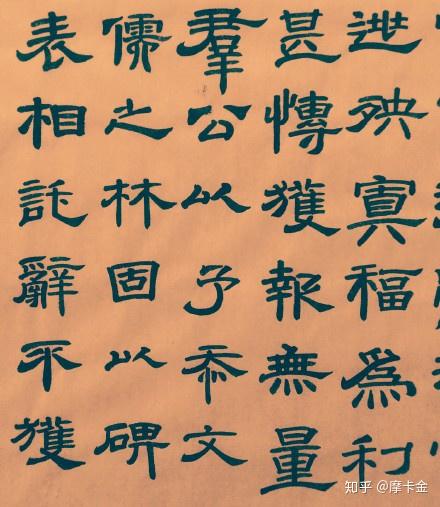 殃㝠福爲利
甚愽獲報無量
羣公以予忝文
儒之林固以碑
表相託辭不獲
知乎 @摩卡金